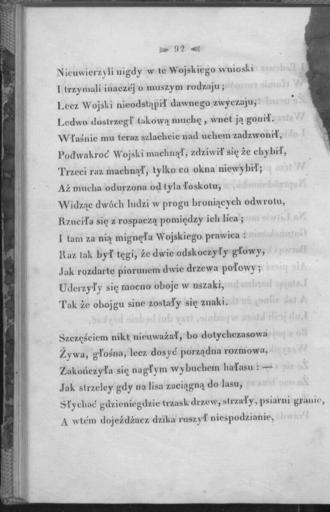 92
Nieuwierzyli nigdy w te Wojskiego wnioski
I trzymali inaczéj o muszym rodzaju;
Lecz Wojski nieodstąpił dawnego zwyczaju,
Ledwo dostrzegł takową muchę, wnet ją gonił.
Właśnie mu teraz szlachcic nad uchem zadzwonił,
Podwakroć Wojski machnął, zdziwił się że chybił,
Trzeci raz machnął, tylko co okna niewybił;
Aż mucha odurzona od tyla łoskotu,
Widząc dwóch ludzi w progu broniących odwrotu,
Rzuciła się z rospaczą pomiędzy ich lica;
I tam za nią mignęła Wojskiego prawica:
Raz tak był tęgi, że dwie odskoczyły głowy,
Jak rozdarte piorunem dwie drzewa połowy;
Uderzyły się mocno oboje w uszaki,
Tak że obojgu sine zostały się znaki.
Szczęściem nikt nieuważał, bo dotychczasowa
Żywa, głośna, lecz dosyć porządna rozmowa,
Zakończyła się nagłym wybuchem hałasu: —
Jak strzelcy gdy na lisa zaciągną do lasu,
Słychać gdzieniegdzie trzask drzew, strzały, psiarni granie,
A wtém dojeżdżacz dzika ruszył niespodzianie,